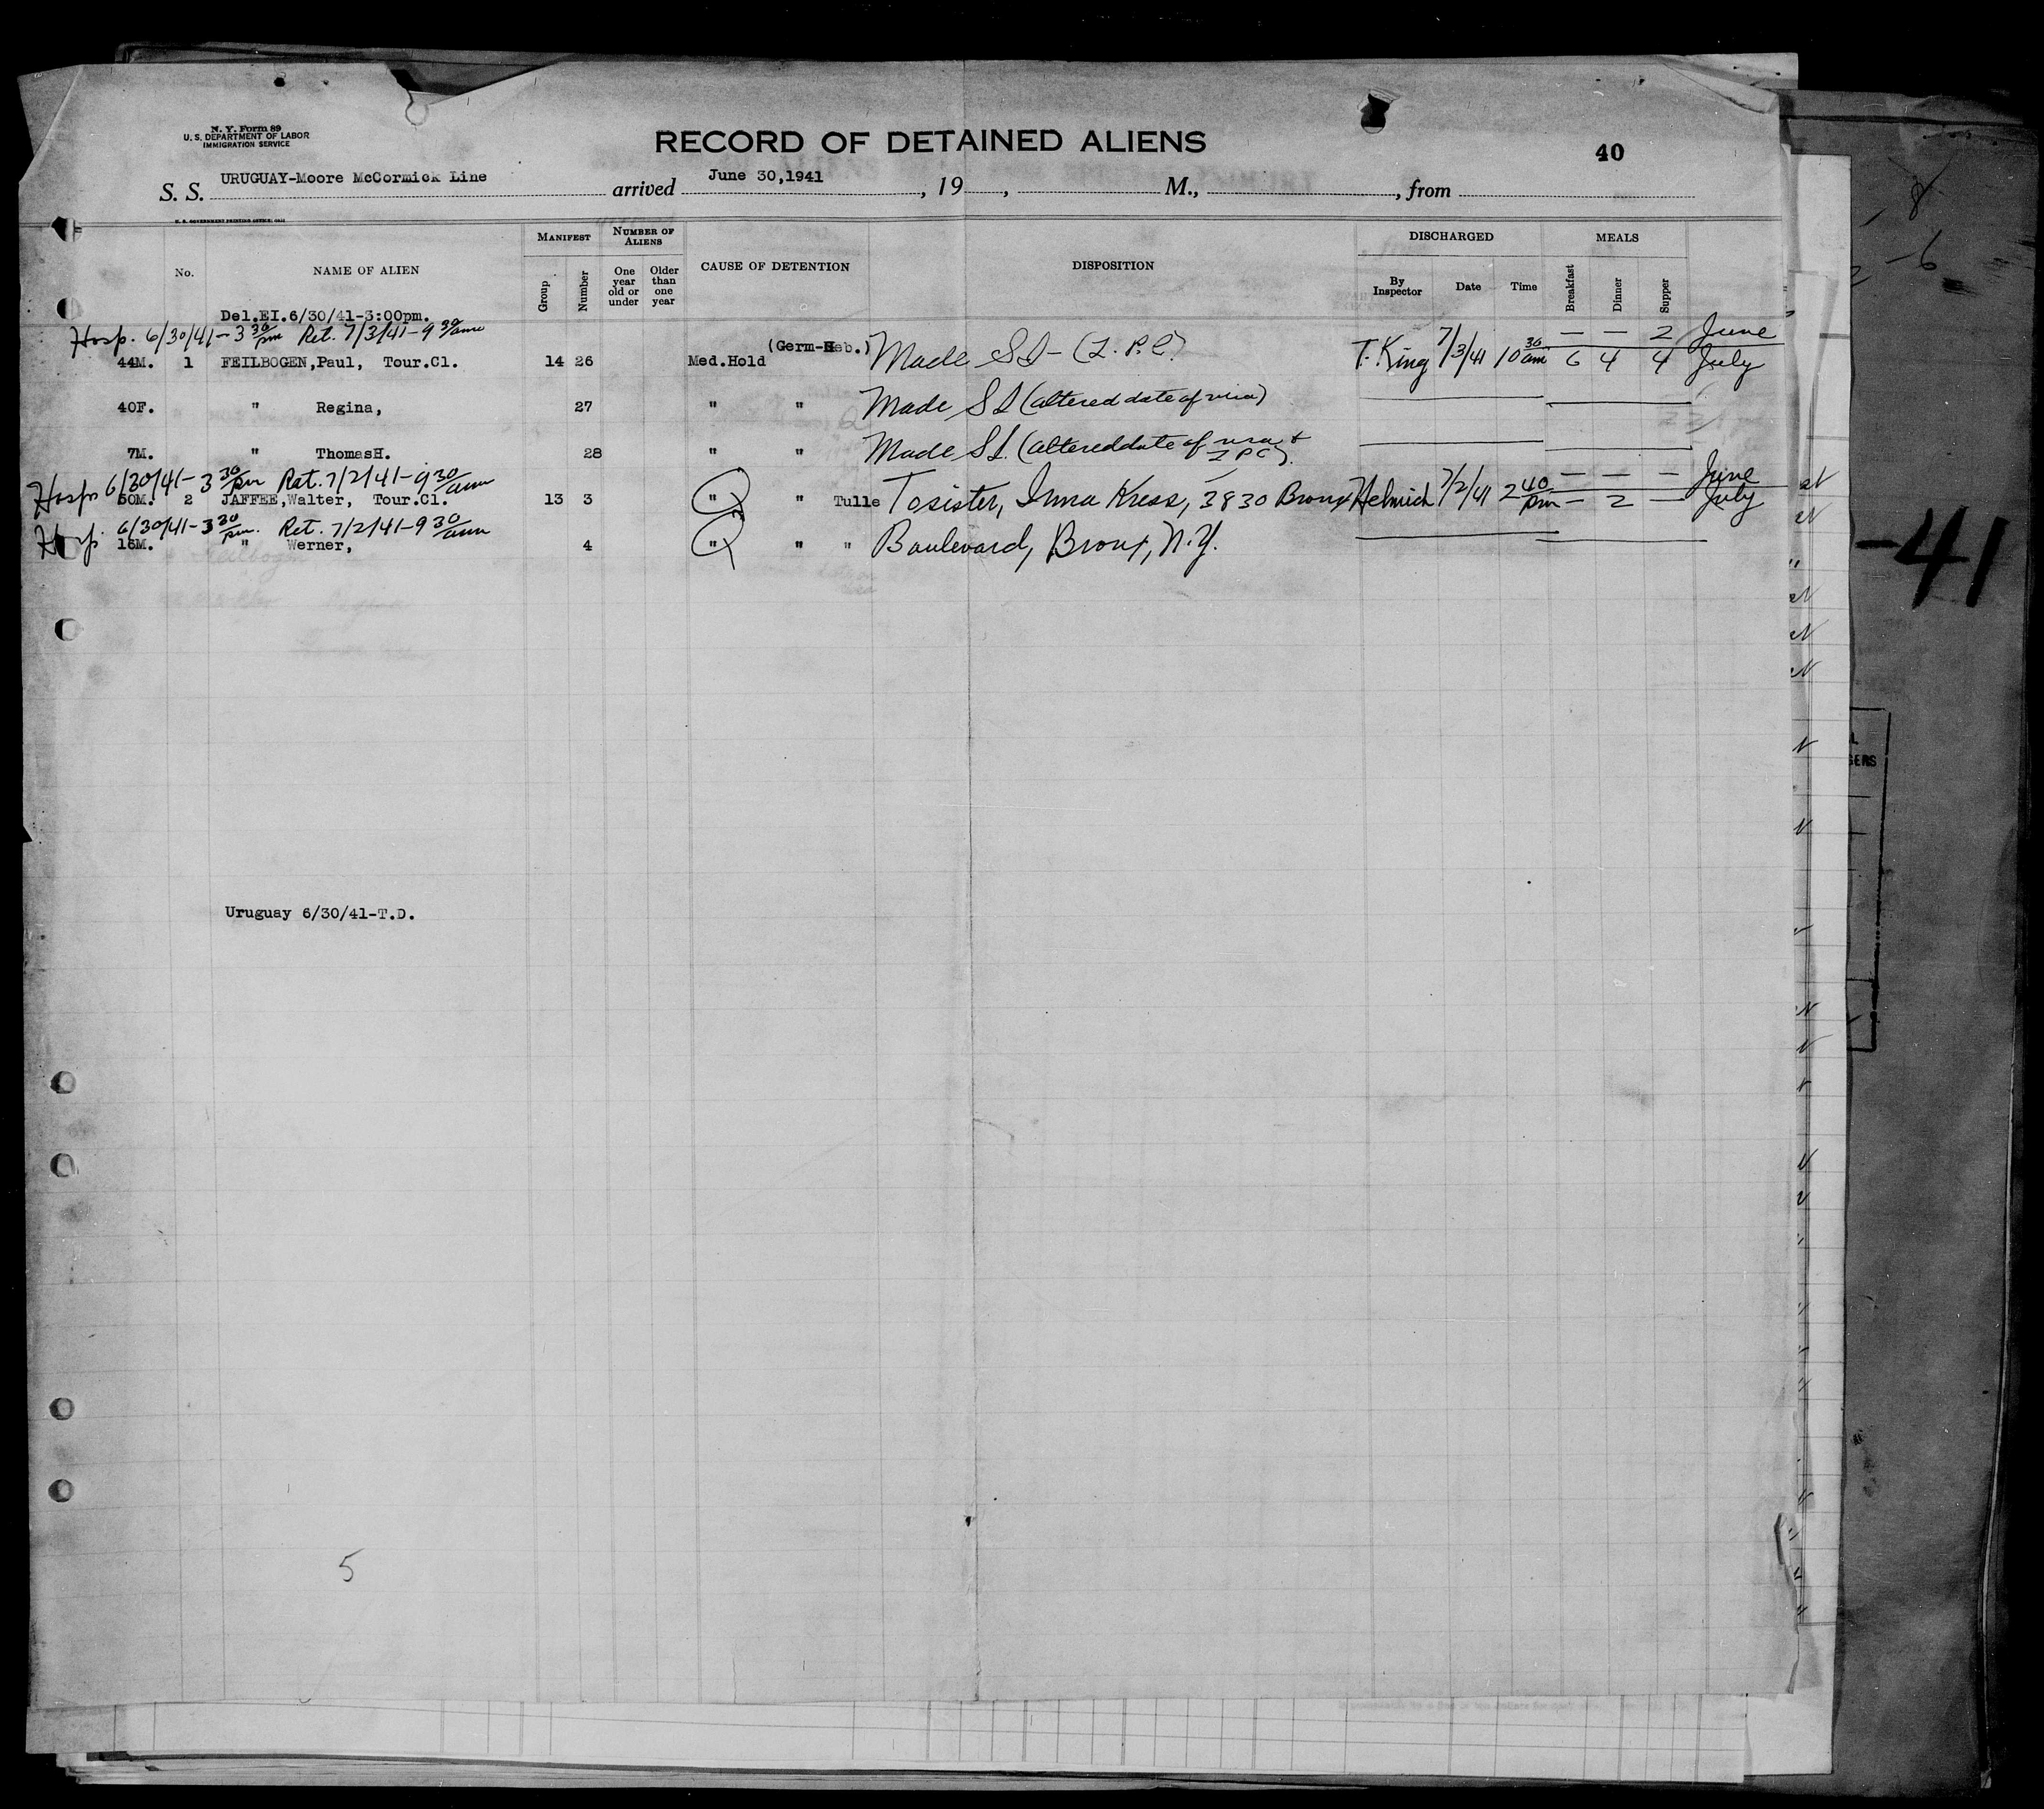 N. Y. Form 89
U. S. DEPARTMENT OF LABOR
IMMIGRATION SERVICE
RECORD OF DETAINED ALIENS
40
S. S. URUGUAY-Moore McCormick Line arrived June 30,1941 , 19 , M., , from
MANIFEST NUMBER OF ALIENS DISCHARGED MEALS
No. NAME OF ALIEN Group Number One year old or under Older than one year CAUSE OF DETENTION DISPOSITION By Inspector Date Time Breakfast Dinner Supper
Del.EI.6/30/41-3:00pm.
Hosp. 6/30/41-3 30/pm Ret. 7/3/41-9 30/am — — 2 June
44M. 1 FEILBOGEN,Paul, Tour.Cl. 14 26 Med.Hold (Germ-Heb.) Made SI - (L.P.C.) T. King 7/3/41 10 30/am 6 4 4 July
40F. " Regina, 27 " " Made SI (altered date of visa)
7M. " ThomasH. 28 " " Made SI. (altered date of visa & LPC).
Hosp 6/30/41-3 30/pm Ret. 7/2/41-9 30/am — — — June
50M. 2 JAFFEE,Walter, Tour.Cl. 13 3 " " Tulle To sister, Irma Kress, 3830 Bronx Helmich 7/2/41 2 40/pm — 2 — July
Hosp. 6/30/41-3 30/pm. Ret. 7/2/41-9 30/am
16M. " Werner, 4 " " " Boulevard, Bronx, N.Y.
Uruguay 6/30/41-T.D.
5
-41
-6